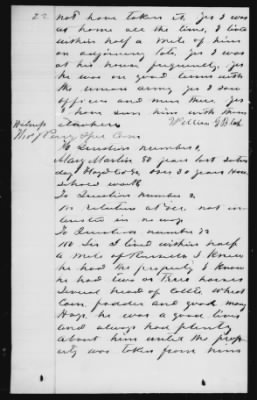 22 not have taken it. Yes I was
at home all the time, I lived
within half a mile of him
on adjoining lots. Yes I was
at his house frequently, yes
he was on good terms with
the union army yes I saw
officers and men there. Yes
I have seen him with them
Witness William G
To Question number 1
Mary Martin 50 years last
day over 30 years
To Question number 2
No relation at all. not in
in no way
To Question number 3
No Sir I lived within half
a mile of Russels I knew
he had the property I know
he had two or three horses
Several head of cattle, wheat
Corn fodder and good many
Hogs. he was a good liver
and always had plenty
about him until the prop
erty was taken from him